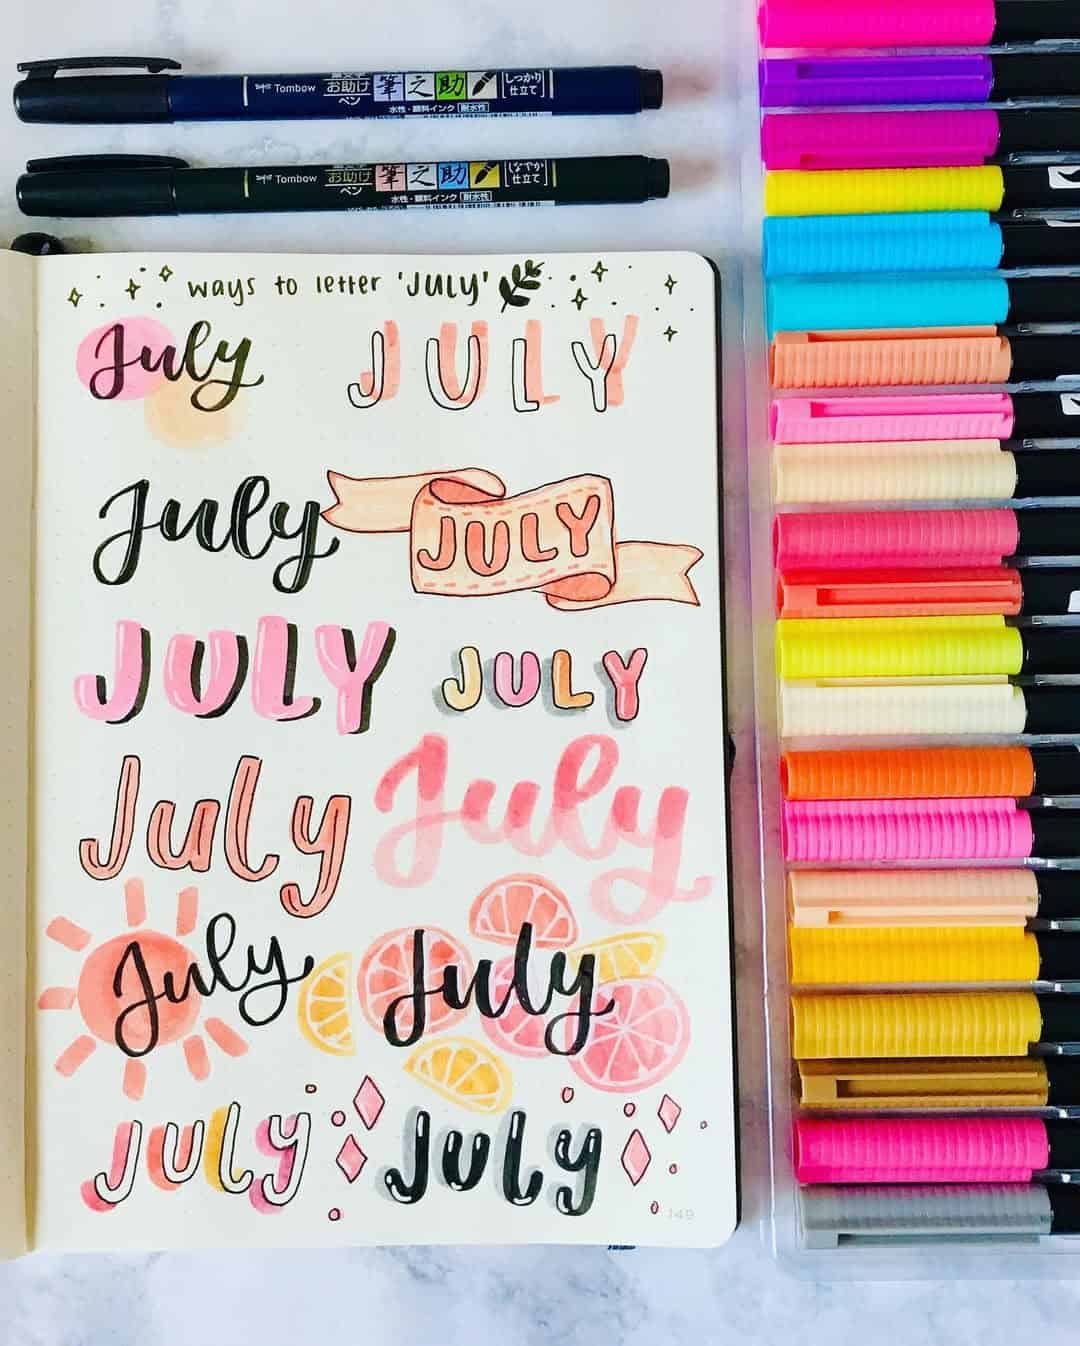 Tombow 筆文字 お助け ペン 筆之助 しっかり 仕立て
水性・顔料インク 耐水性
Tombow お助け ペン 筆之助 しなやか 仕立て
水性・顔料インク 耐水性
ways to letter 'JULY'
July JULY
July JULY
JULY JULY
July July
July July
July July
149